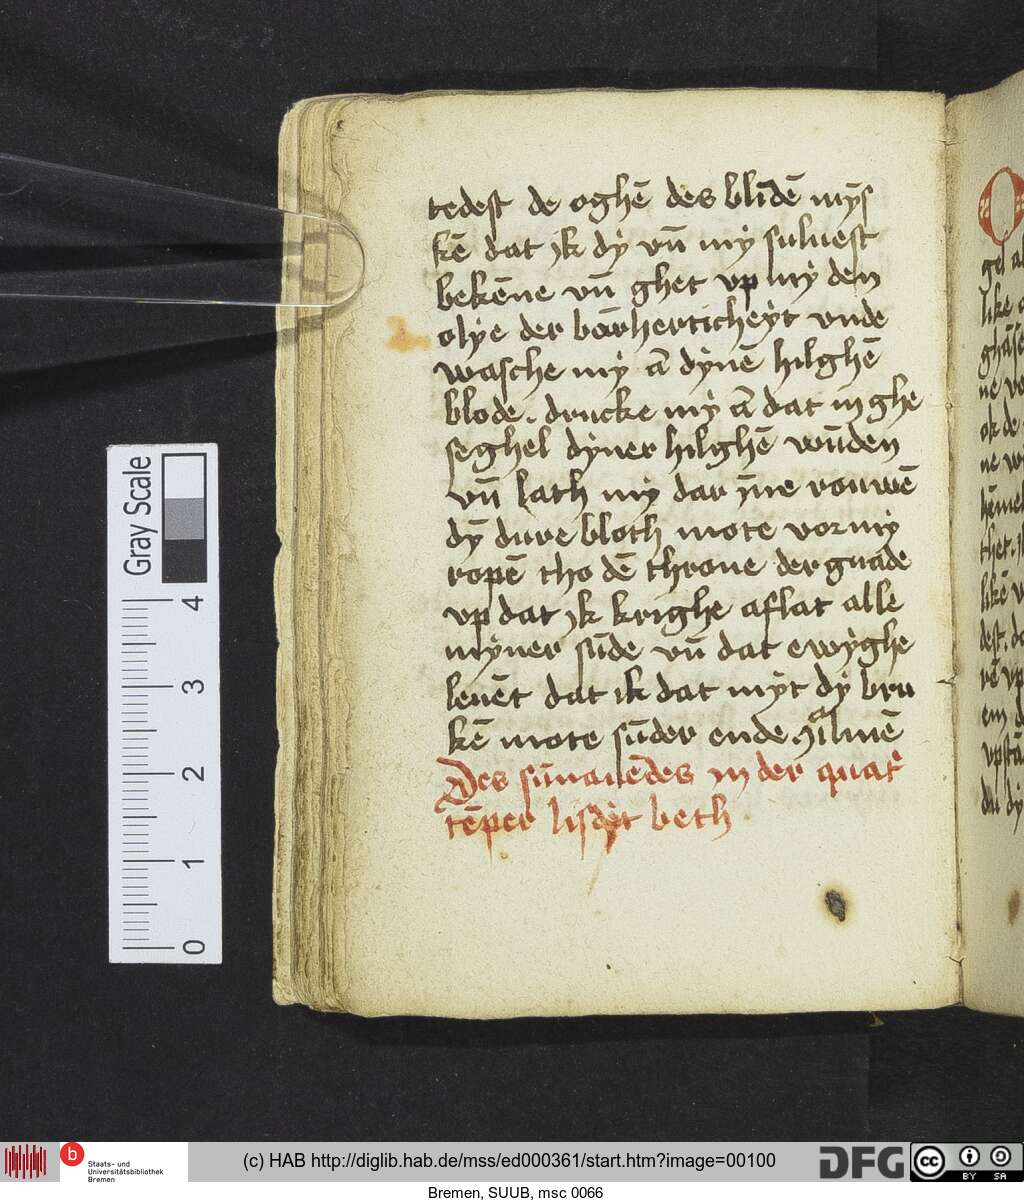 tedest de oghē des blīdē mȳs
kē dat ik dy vn̄ my suluest
bekēne vn̄ ghet vp my den
olye der barherticheyt vnde
wasche my ī dynē hilghē
blode. drucke my ī dat inghe
seghel dyner hilghē wūden
vn̄ lath my dar ȳne rouwē
dȳ dure bloth mote vor my
ropē tho dē throne der gnade
vp dat ik krighe aflat alle
myner sūde vn̄ dat ewyghe
leuēt dat ik dat myt dy bru
kē mote sūder ende
Des sūnauēdes in der quat
tēper lis dyt beth
Gray Scale
4
3
2
1
0
b
Staats- und
Universitätsbibliothek
Bremen
(c) HAB http://diglib.hab.de/mss/ed000361/start.htm?image=00100
DFG
cc
BY SA
Bremen, SUUB, msc 0066